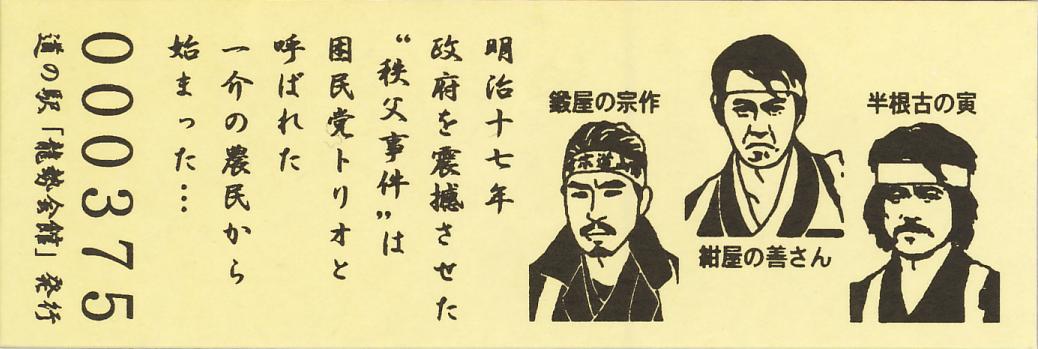 半根古の寅
鍛屋の宗作
紺屋の善さん
明治十七年
政府を震撼させた
“秩父事件”は
困民党トリオと
呼ばれた
一介の農民から
始まった…
000375
道の駅「龍勢会館」発行